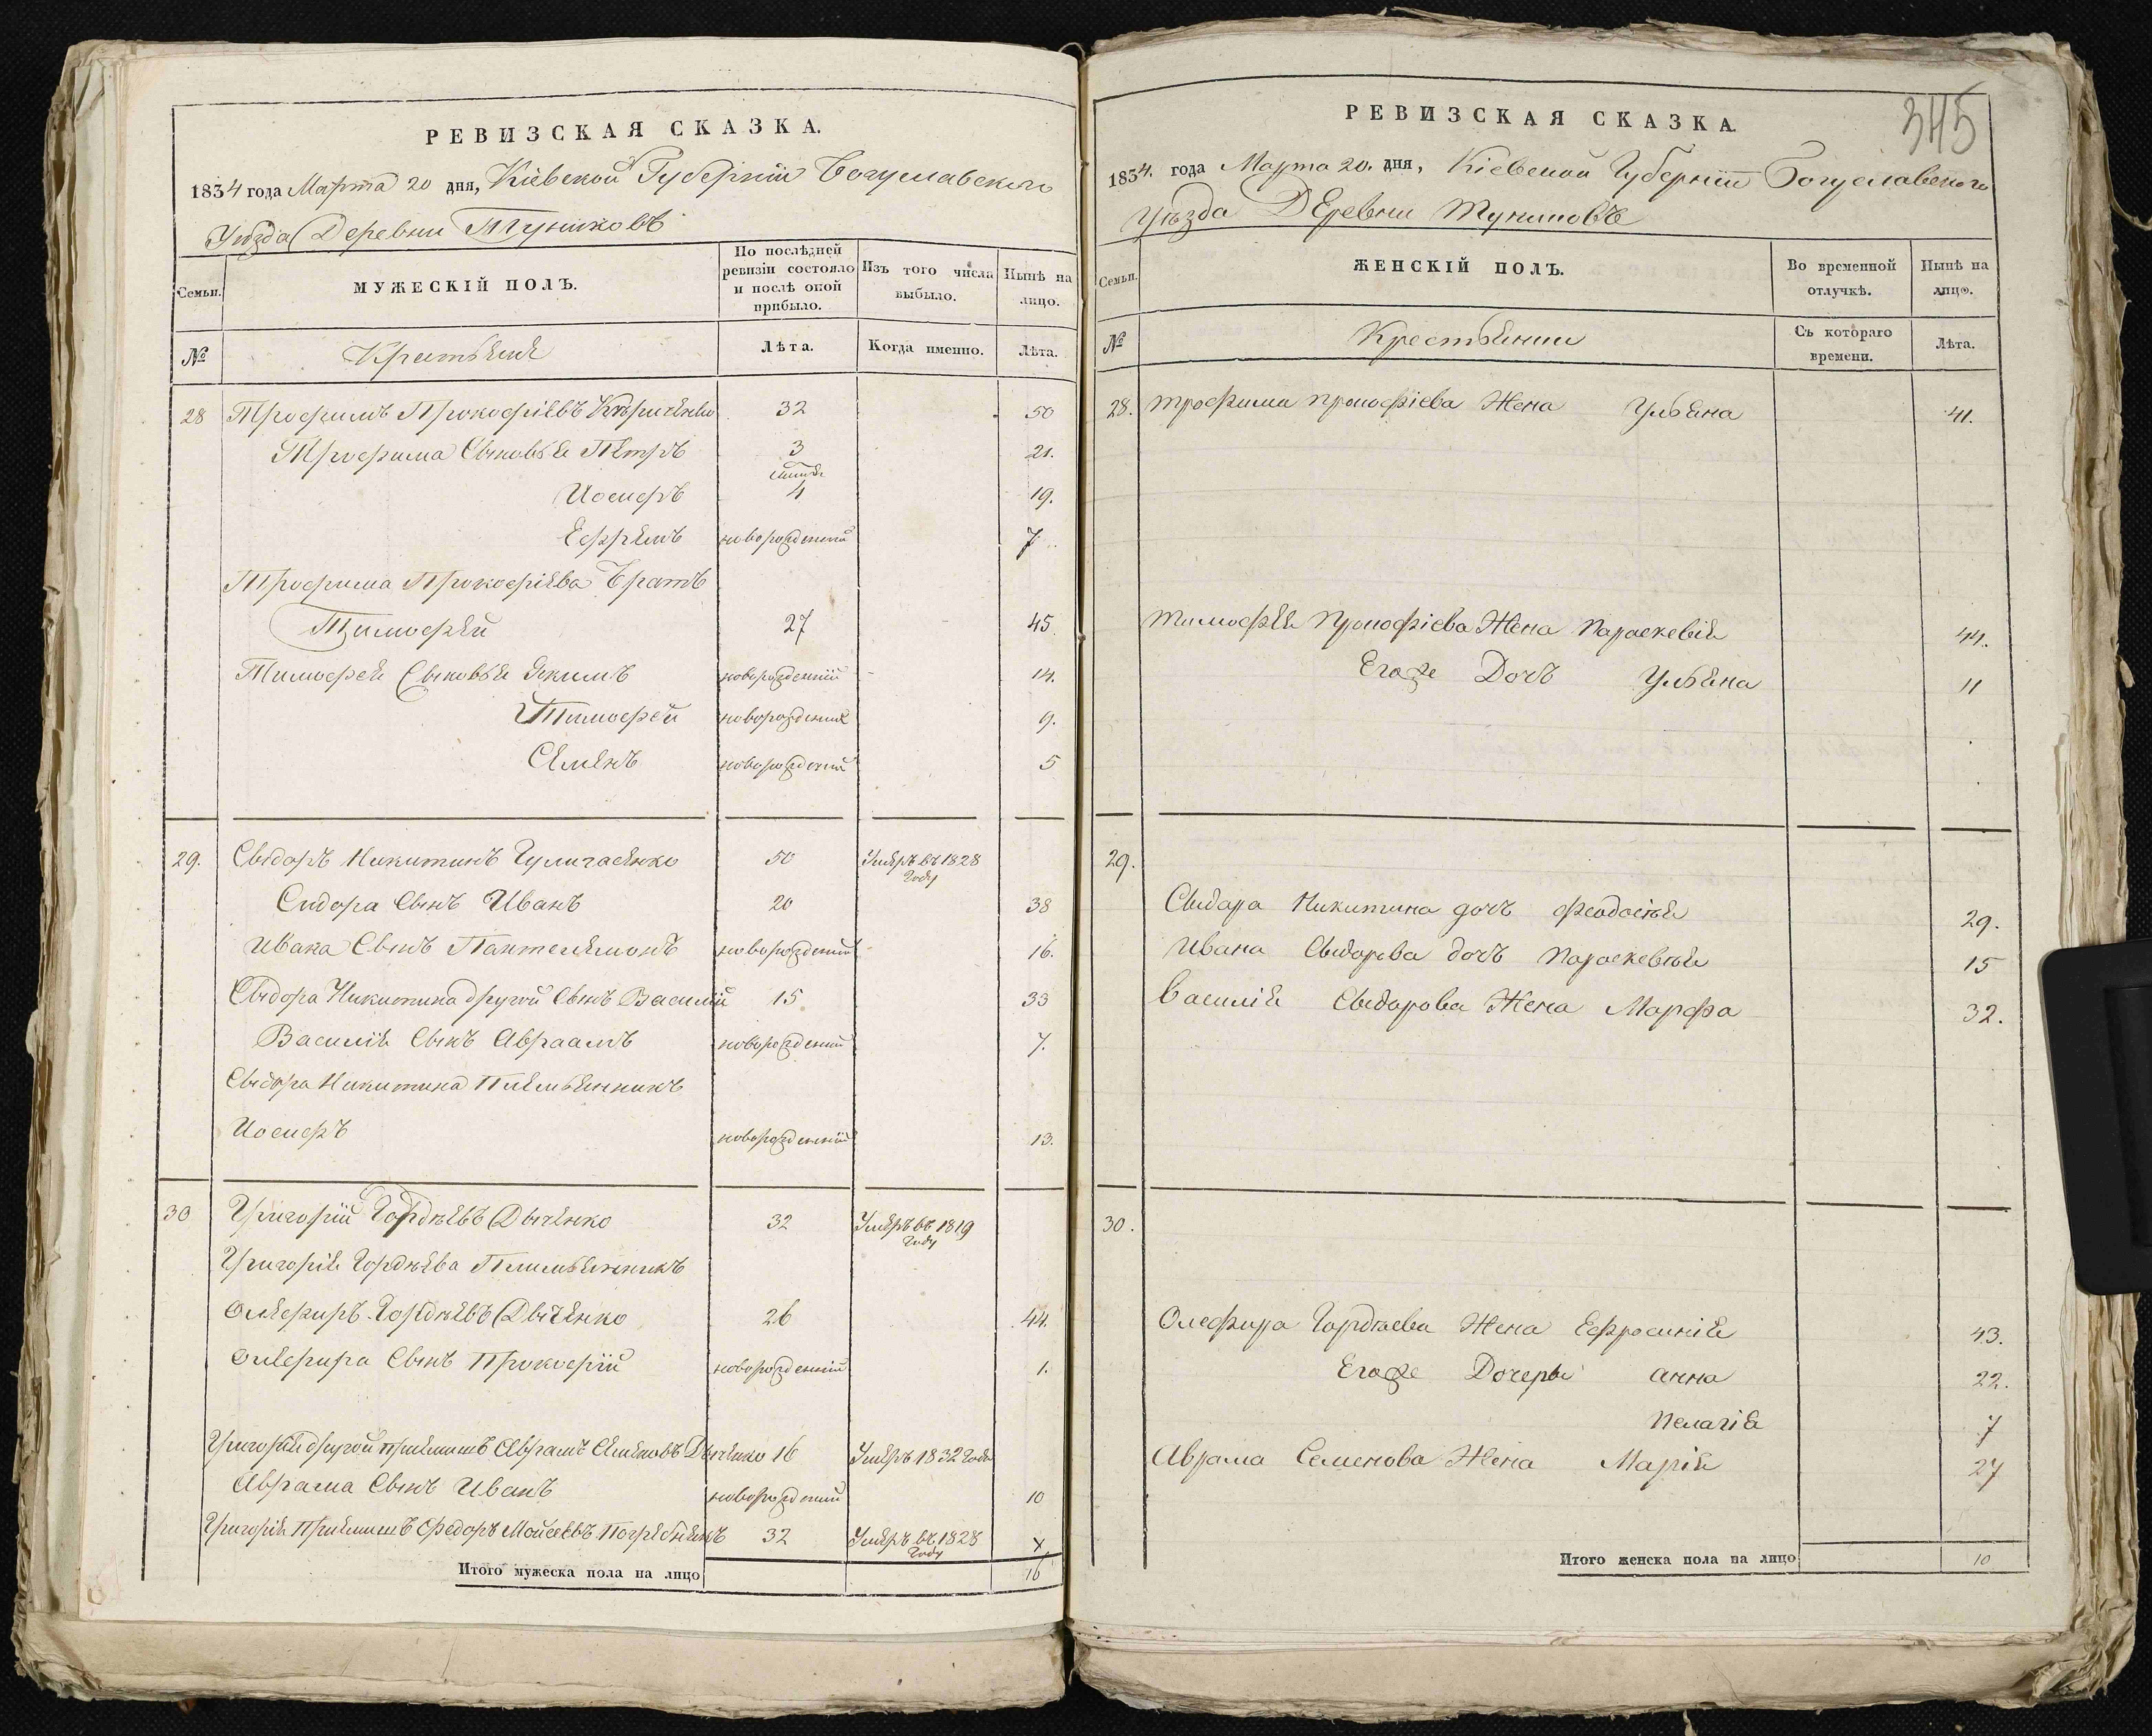 РЕВИЗСКАЯ СКАЗКА.
1834 года Марта 20 дня, Кіевской Губерніи Богуславскаго
Уѣзда Деревни Туниковъ
Семьи.
МУЖЕСКІЙ ПОЛЪ.
По послѣдней ревизіи состояло и послѣ оной прибыло.
Изъ того числа выбыло.
Нынѣ на лицо.
№
Крестьяне
Лѣта.
Когда именно.
Лѣта.
28 Трофимъ Прокофіевъ 32 50
Трофима Сыновья Петръ 3 21.
Іосифъ 4 19.
Ефремъ новорожденный 7
Трофима Прокофіева Братъ
Тимофей 27 45.
Тимофея Сыновья Якимъ новорожденный 14.
Тимофей новорожденный 9.
Семенъ новорожденный 5
29. Сыдоръ Никитинъ 50 Умеръ въ 1828
Году
Сидора Сынъ Иванъ 20 38
Ивана Сынъ Пантелемонъ новорожденный 16.
Сыдора Никитина другой Сынъ Василій 15 33
Василія Сынъ Авраамъ новорожденный 7.
Сыдора Никитина Племьянникъ
Иосифъ новорожденный 13.
30 Григорій Гордѣевъ Дыченко 32 Умеръ въ 1819
Году
Григорія Гордѣева Племьянникъ
Олефиръ Гордѣевъ Дыченко 26 44.
Олефира Сынъ Прокофій новорожденный 1.
Григорія другой приемышъ Аврамъ Семеновъ Дыченко 16 Умеръ 1832 Года
Аврама Сынъ Иванъ новорожденный 10
Григорія Приемышъ Федоръ Мойсеевъ 32 Умеръ въ 1828 х
Году
Итого мужеска пола на лицо 16
345
РЕВИЗСКАЯ СКАЗКА.
1834. года Марта 20. дня, Кіевской Губерніи Богуславскаго
Уѣзда Деревни Туниковъ
Семьи.
ЖЕНСКІЙ ПОЛЪ.
Во временной отлучкѣ.
Нынѣ на лицо.
№
Крестьянки
Съ котораго времени.
Лѣта.
28. Трофима Прокофіева Жена Ульяна 41.
Тимофея Прокофіева Жена Параскевія 44.
Егоже Дочь Ульяна 11
29.
Сыдара Никитина дочь Феодосія 29.
Ивана Сыдарова дочь Параскевія 15
Василія Сыдарова Жена Марфа 32.
30.
Олефира Гордѣева Жена Ефросинія 43.
Егоже Дочеры Анна 22.
Пелагія 7
Аврама Семенова Жена Марія 27
Итого женска пола на лицо 10